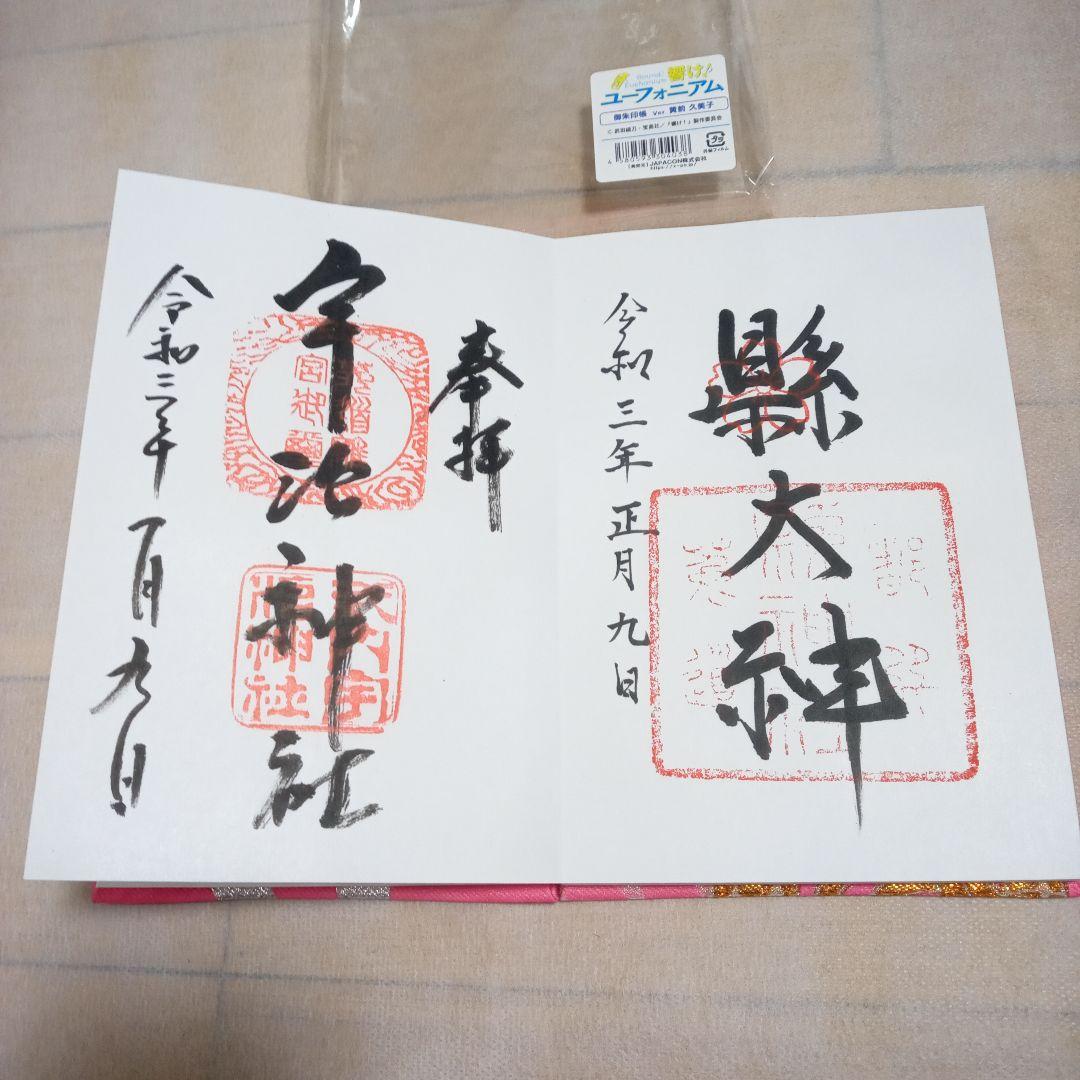 響け!
ユーフォニアム
Sound! Euphonium
御朱印帳 Ver 黄前 久美子
© 武田綾乃・宝島社/『響け!』製作委員会
4 580593 304038
外装フィルム
[発売元]JAPACON株式会社
縣大神
令和三年正月九日
奉拝
宇治神社
令和三年一月九日